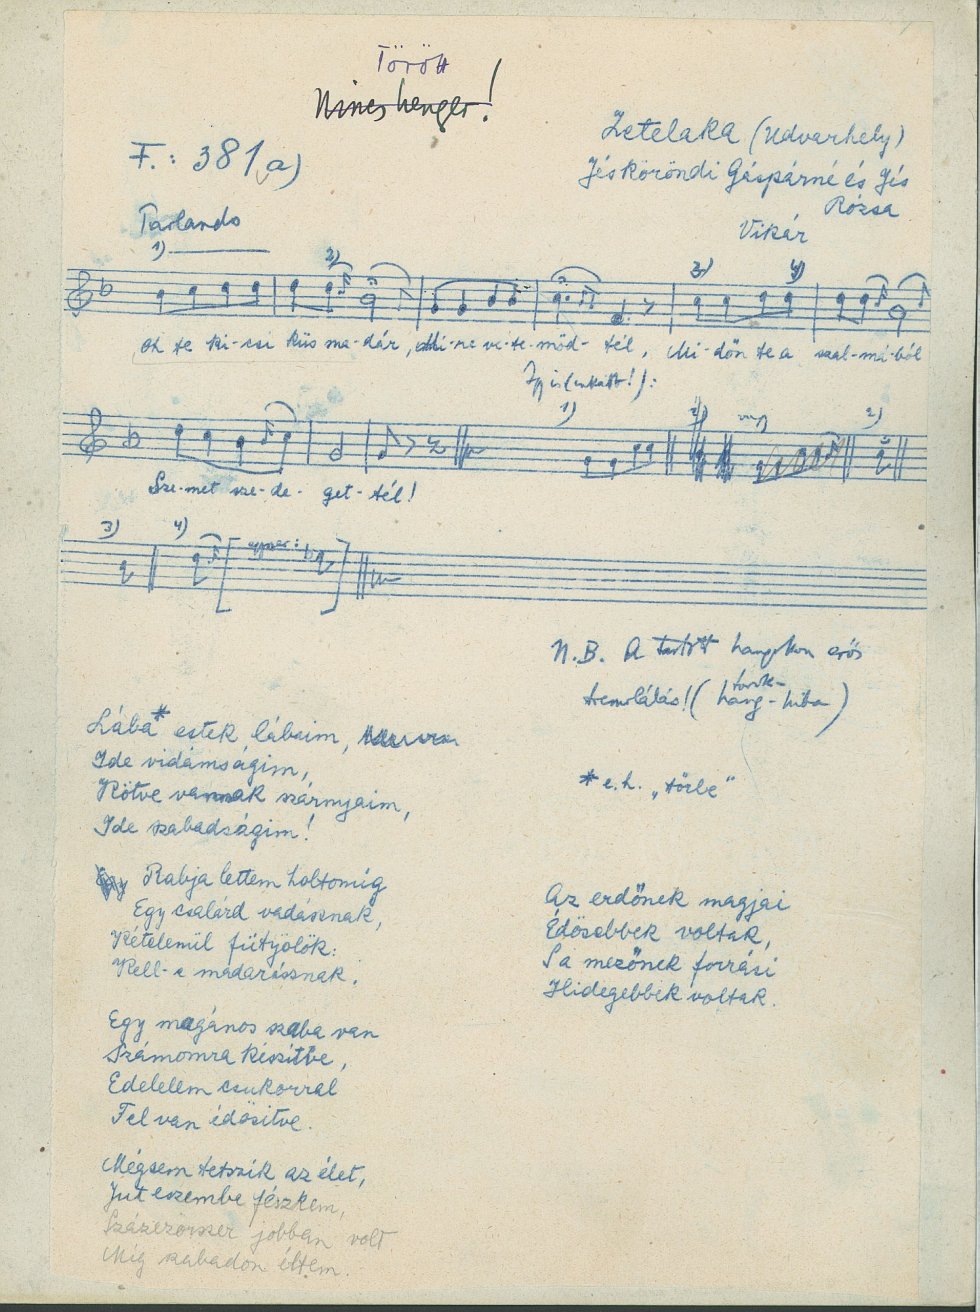 Törött
Nincs henger!
F.: 381 a)
Zetelaka (Udvarhely)
Jéskoröndi Gáspárné és Jés
Rózsa
Vikár
Parlando
1) 2) 3) 4)
Oh te ki-csi küs ma-dár, Mi-re ve-te-möd-tél, Mi-dőn te a szal-má-ból
Így is (inkább!):
1) 2)
Sze-met sze-de-get-tél!
3) 4) egyszer:
N.B. A tartott hangokon erős
tremolálás! (hang-hiba)
torok-
Lába* estek lábaim,
Ide vidámságim,
Kötve vannak szárnyaim,
Ide szabadságim!
* e.h. „tőrbe"
Rabja lettem holtomig
Egy csalárd vadásznak,
Kételenül fütyölök:
Kell-e madarásznak.
Az erdőnek magjai
Édösebbek voltak,
S a mezőnek forrási
Hidegebbek voltak.
Egy magános szoba van
Számomra készítve,
Edelelem csukorral
Fel van édösitve.
Mégsem tetszik az élet,
Jut eszembe fészkem,
Százezörszer jobban volt
Míg szabadon éltem.